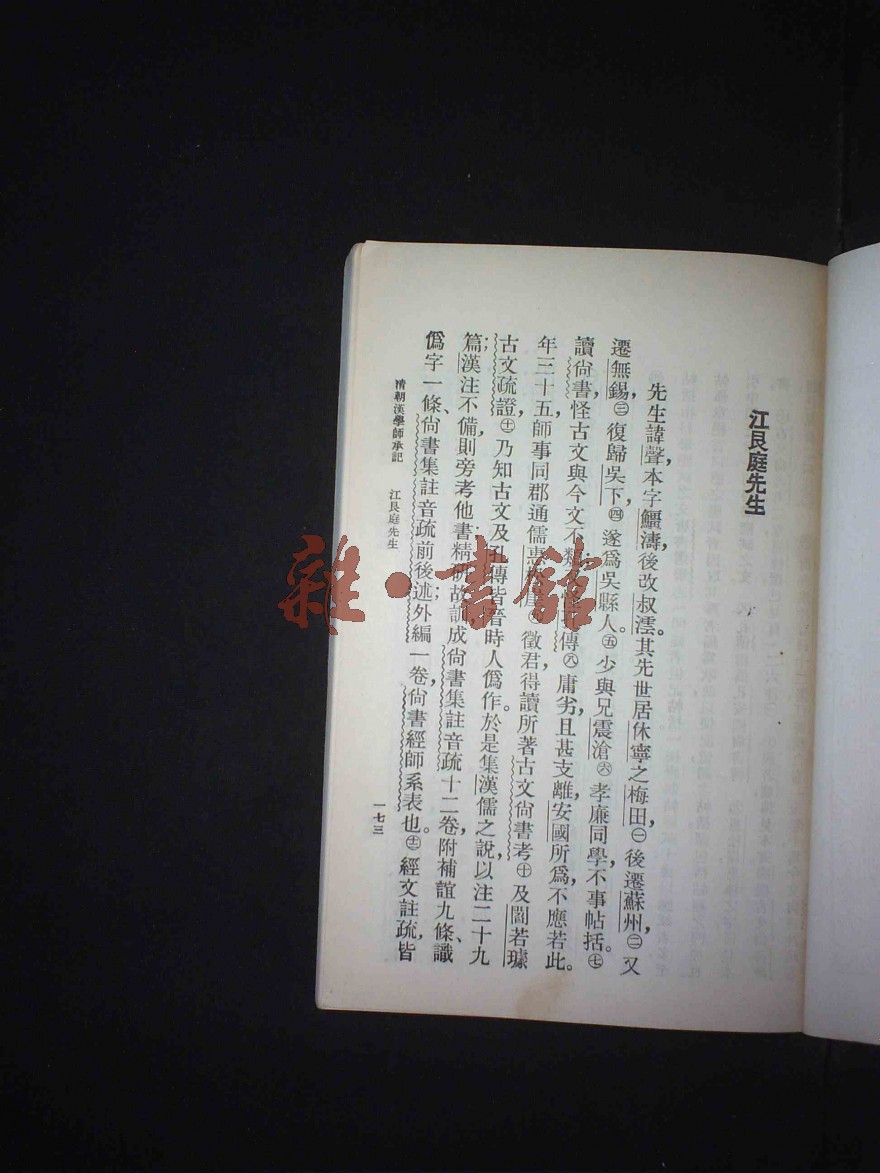 江艮庭先生
先生諱聲，本字鱷濤，後改叔澐。其先世居休寧之梅田，㊀後遷蘇州，㊁又
遷無錫，㊂復歸吳下，㊃遂爲吳縣人。㊄少與兄震滄㊅孝廉同學，不事帖括。㊆
讀尚書，怪古文與今文不類，又怪孔傳㊇庸劣，且甚支離，安國所爲，不應若此。
年三十五，師事同郡通儒惠 徵君，得讀所著古文尚書考㊉及閻若璩
古文疏證；乃知古文及孔傳皆晉時人僞作。於是集漢儒之說，以注二十九
篇；漢注不備，則旁考他書，精研故訓，成尚書集註音疏十二卷，附補誼九條、識
僞字一條、尚書集註音疏前後述外編一卷，尚書經師系表也。經文註疏，皆
清朝漢學師承記 江艮庭先生
一七三
雜·書館